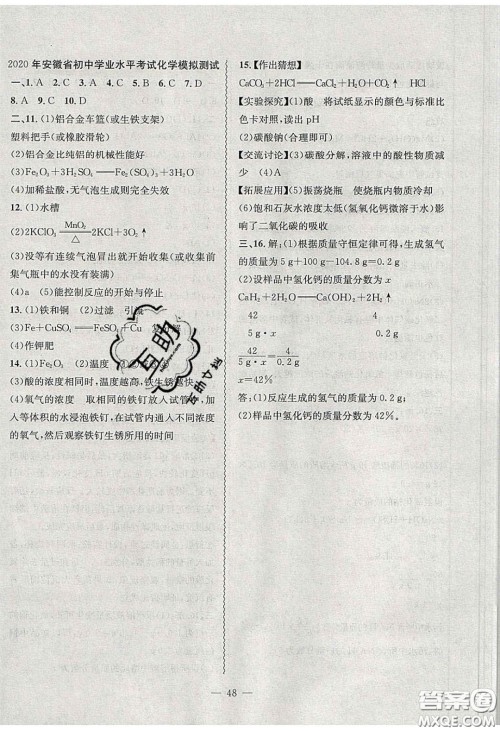 2020年安徽省初中学业水平考试化学模拟测试
一、1. A　2. C　3. B　4. D　5. A　6. C　7. D
8. A　9. D　10. A
二、11. (1)铝合金车篮(或生铁支架)
塑料把手(或橡胶滑轮)
(2)铝合金比纯铝的机械性能好
(3)Fe₂O₃+3H₂SO₄══Fe₂(SO₄)₃+3H₂O
(4)加稀盐酸,无气泡生成则完全失效
12. (1)水槽
(2)2KClO₃ MnO₂ △ 2KCl+3O₂↑
(3)没等有连续气泡冒出就开始收集(或收集前
集气瓶中的水没有装满)
(4)a　(5)能控制反应的开始与停止
13. (1)铁和铜　(2)过滤　引
(3)Fe+CuSO₄══FeSO₄+Cu
(4)作钾肥
14. (1)Fe₂O₃　(2)温度
(3)酸的浓度越大,温度越高,铁生锈越快
(4)氧气的浓度　取相同的铁钉放入试管,加
入等体积的水浸泡铁钉,在试管内通入不同浓度
的氧气,然后观察铁钉生锈所用的时间
15.【作出猜想】
CaCO₃+2HCl══CaCl₂+H₂O+CO₂↑
【实验探究】(1)大　将试纸显示的颜色与标准比
色卡对照,读出pH
(2)碳酸钠(合理即可)
【交流讨论】(3)碳酸分解,溶液中的酸性物质减
少　(4)A
【拓展应用】(5)振荡烧瓶　使烧瓶内物质冷却
(6)饱和石灰水浓度太低(氢氧化钙微溶于水)影
响了二氧化碳的吸收
三、16. 解:(1)根据质量守恒定律可得,生成氢气
的质量为5 g+100 g-104.8 g=0.2 g
(2)设样品中氢化钙的质量分数为x
CaH₂+2H₂O══Ca(OH)₂+2H₂↑
42　4
5 g·x　0.2 g
42/5 g·x=4/0.2 g
x=42%
答:(1)反应生成的氢气的质量为0.2 g;
(2)样品中氢化钙的质量分数为42%。
互助
48
答案圈
MXQE.COM